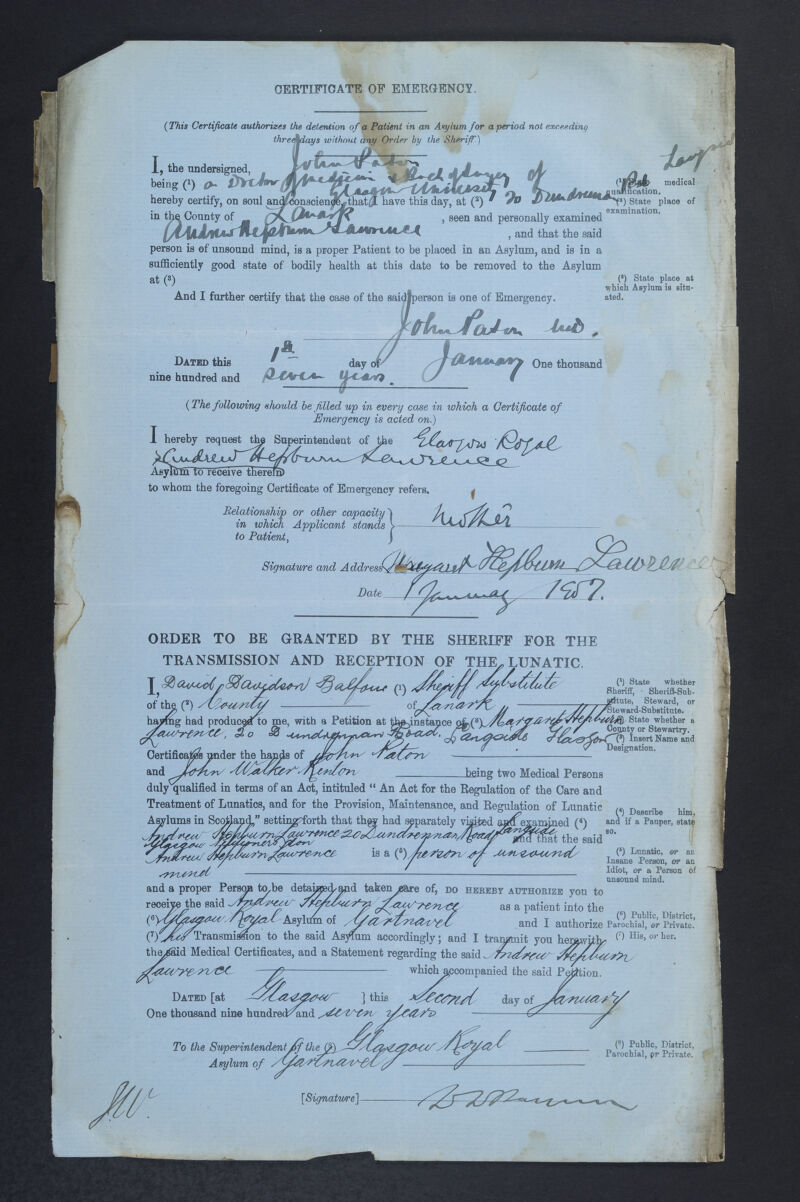 CERTIFICATE OF EMERGENCY.
(This Certificate authorizes the detention of a Patient in an Asylum for a period not exceeding
three days without any Order by the Sheriff)
I, the undersigned, John Paton
being (¹) a Doctor of Medicine of
Glasgow University
hereby certify, on soul and conscience, that I have this day, at (²) 20 Dundrennan Rd Langside
in the County of Lanark , seen and personally examined
Andrew Hepburn Lawrence , and that the said
person is of unsound mind, is a proper Patient to be placed in an Asylum, and is in a
sufficiently good state of bodily health at this date to be removed to the Asylum
at (³)
(¹) State medical
qualification.
(²) State place of
examination.
(³) State place at
which Asylum is situ-
ated.
And I further certify that the case of the said person is one of Emergency.
John Paton MD.
DATED this 1st day of January One thousand
nine hundred and seven years.
(The following should be filled up in every case in which a Certificate of
Emergency is acted on.)
I hereby request the Superintendent of the Glasgow Royal
Andrew Hepburn Lawrence
Asylum to receive therein
to whom the foregoing Certificate of Emergency refers.
Relationship or other capacity
in which Applicant stands
to Patient,
Mother
Signature and Address Margaret Hepburn Lawrence
Date 1 January 1907.
ORDER TO BE GRANTED BY THE SHERIFF FOR THE
TRANSMISSION AND RECEPTION OF THE LUNATIC.
I, David Davidson Balfour (¹) Sheriff Substitute
of the (²) County of Lanark
having had produced to me, with a Petition at the instance of (³) Margaret Hepburn
Lawrence, 20 Dundrennan Road, Langside Glasgow
Certificates under the hands of John Paton
and John Walker Renton being two Medical Persons
duly qualified in terms of an Act, intituled "An Act for the Regulation of the Care and
Treatment of Lunatics, and for the Provision, Maintenance, and Regulation of Lunatic
Asylums in Scotland," setting forth that they had separately visited and examined (⁴)
Andrew Hepburn Lawrence 20 Dundrennan Road Langside
Glasgow Petitioner's son and that the said
Andrew Hepburn Lawrence is a (⁵) person of unsound
mind
and a proper Person to be detained and taken care of, DO HEREBY AUTHORIZE you to
receive the said Andrew Hepburn Lawrence as a patient into the
(⁶) Glasgow Royal Asylum of Gartnavel and I authorize
(⁷) his Transmission to the said Asylum accordingly; and I transmit you herewith
the said Medical Certificates, and a Statement regarding the said Andrew Hepburn
Lawrence which accompanied the said Petition.
(¹) State whether
Sheriff, Sheriff-Sub-
stitute, Steward, or
Steward-Substitute.
(²) State whether a
County or Stewartry.
(³) Insert Name and
Designation.
(⁴) Describe him,
and if a Pauper, state
so.
(⁵) Lunatic, or an
Insane Person, or an
Idiot, or a Person of
unsound mind.
(⁶) Public, District,
Parochial, or Private.
(⁷) His, or her.
DATED [at Glasgow ] this Second day of January
One thousand nine hundred and seven years
To the Superintendent of the (⁸) Glasgow Royal
Asylum of Gartnavel
(⁸) Public, District,
Parochial, or Private.
[Signature]